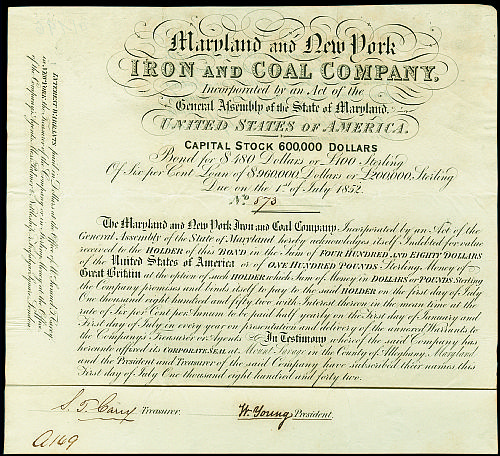 Maryland and New York
IRON AND COAL COMPANY,
Incorporated by an Act of the
General Assembly of the State of Maryland.
UNITED STATES OF AMERICA.
CAPITAL STOCK 600,000 DOLLARS
Bond for $480 Dollars or £100 Sterling
Of Six per Cent Loan of $960,000, Dollars or £200,000, Sterling
Due on the 1st of July 1852.
No 873
The Maryland and New York Iron and Coal Company, Incorporated by an Act of the
General Assembly of the State of Maryland hereby acknowledges itself Indebted for value
received to the HOLDER of this BOND in the Sum of FOUR HUNDRED AND EIGHTY DOLLARS
of the United States of America or of ONE HUNDRED POUNDS Sterling Money of
Great Britain at the option of such HOLDER which Sum of Money in DOLLARS or POUNDS Sterling
the Company promises and binds itself to pay to the said HOLDER on the first day of July
One thousand eight hundred and fifty two with Interest thereon in the mean time at the
rate of Six per Cent per Annum to be paid half yearly on the First day of January and
First day of July in every year on presentation and delivery of the annexed Warrants to
the Company's Treasurer or Agents In Testimony whereof the said Company has
hereunto affixed its CORPORATE SEAL at Mount Savage in the County of Alleghany, Maryland
and the President and Treasurer of the said Company have subscribed their names this
First day of July One thousand eight hundred and forty two.
Treasurer.
W. Young President.
A169
INTEREST WARRANTS